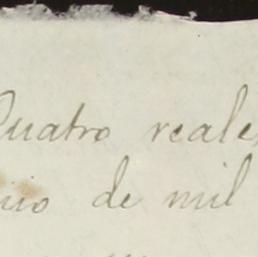 Quatro reales
de mil